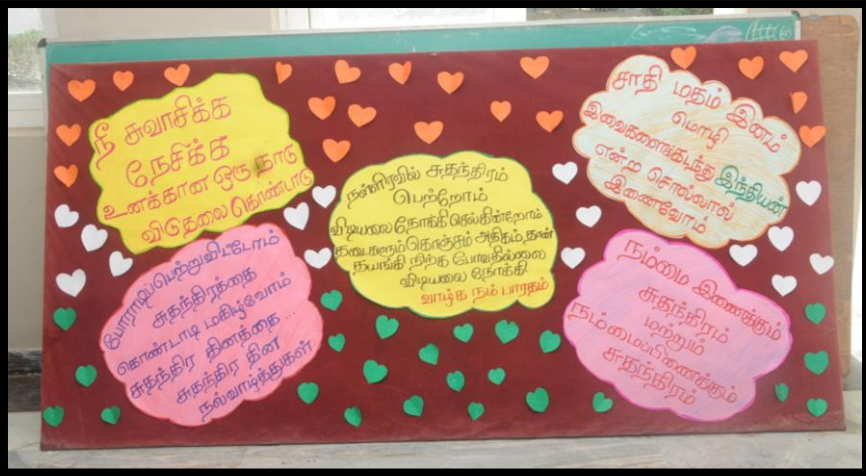 நீ சுவாசிக்க
நேசிக்க
உனக்கான ஒரு நாடு
விடுதலை கொண்டாடு
போராடிப்பெற்றுவிட்டோம்
சுதந்திரத்தை
கொண்டாடி மகிழ்வோம்
சுதந்திர தினத்தை...
சுதந்திர தின
நல்வாழ்த்துகள்
நள்ளிரவில் சுதந்திரம்
பெற்றோம்
விடியலை நோக்கி செல்கின்றோம்
தடைகளும் கொஞ்சம் அதிகம் தான்
தயங்கி நிற்க போவதில்லை
விடியலை நோக்கி
வாழ்க நம் பாரதம்
சாதி மதம் இனம்
மொழி
இவைகளைகடந்து இந்தியன்
என்ற சொல்லால்
இணைவோம்
நம்மை இணைக்கும்
சுதந்திரம்
மற்றும்
நம்மைப்பிணைக்கும்
சுதந்திரம்